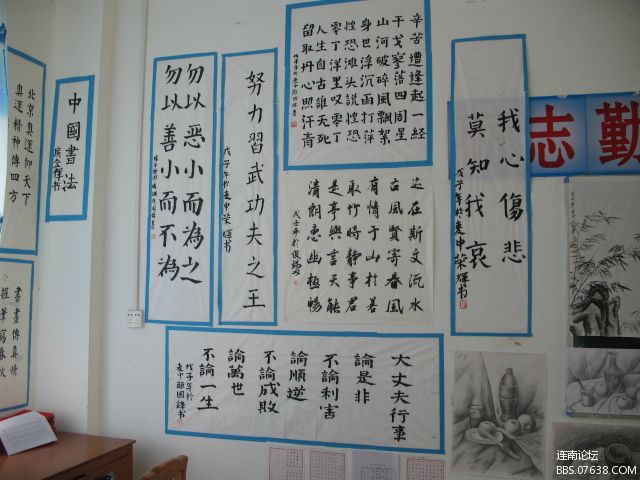 北京奧運仰天下
奧運精神傳四方
中國書法
書畫傳真情
握筆寫春秋
勿以惡小而為之
勿以善小而不為
努力習武功夫之王
戊子年於連中榮輝书
辛苦遭逢起一經
干戈寥落四周星
山河破碎風飄絮
身世浮沉雨打萍
惶恐滩头說惶恐
零丁洋里叹零丁
人生自古誰无死
留取丹心照汗青
在斯文流水
古風賢寄春風
有情于山於若
取竹時静事君
是亭與言天能
清朗惠幽極暢
戊子年於
我心傷悲
莫知我哀
戊子年於連中榮輝书
志勤
大丈夫行事
論是非
不論利害
論順逆
不論成敗
論萬世
不論一生
戊子年於
连南论坛
BBS.07638.COM